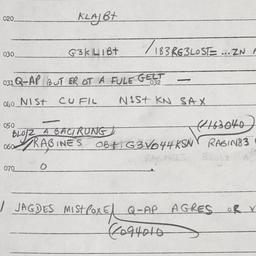 020 KLAJBt
030 G3KLIBt /183RG3LOST=...ZN
031 Q-AP BUT ER OT A FULE GELT
032
040 NISt CUFIL NISt KN SAX
050
BLOIZ A BACIRUNG (/163040)
060 RABINES OBtIG3V044KSN RABIN83
070 0 .
JAGDES MISTPOXE/ Q-AP AGRES OR
(/094010